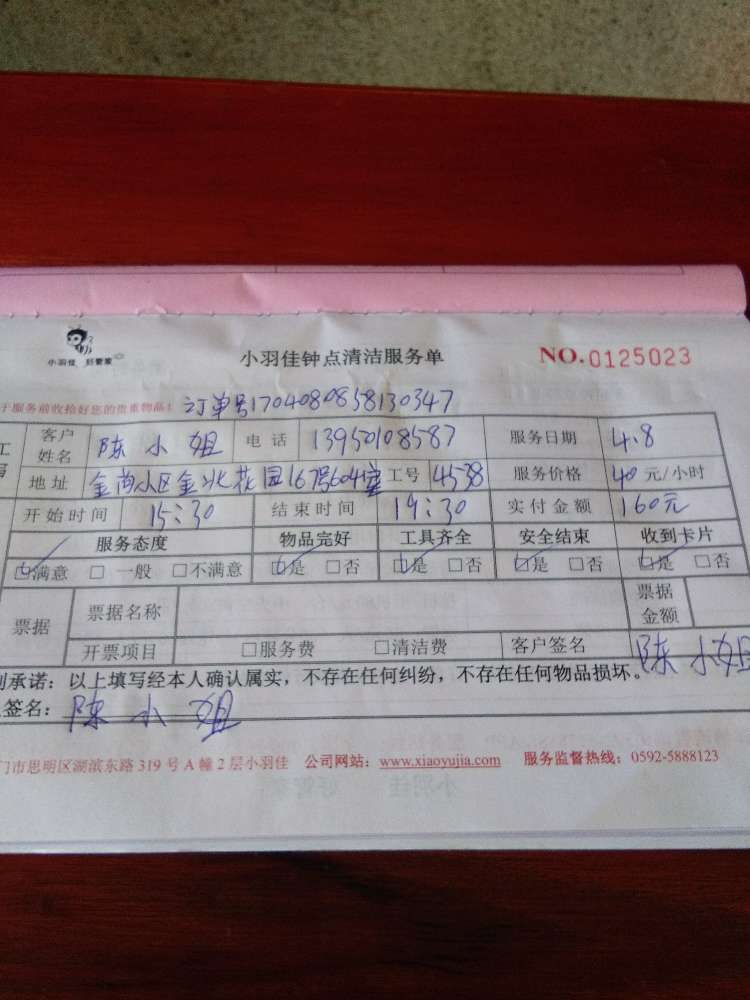 小羽佳 好管家
小羽佳钟点清洁服务单 NO.0125023
于服务前收拾好您的贵重物品! 订单号1704080858130347
客户姓名 陈小姐 电话 13950108587 服务日期 4.8
地址 金尚小区金北花园167号604室 工号 4538 服务价格 40元/小时
开始时间 15:30 结束时间 19:30 实付金额 160元
服务态度 物品完好 工具齐全 安全结束 收到卡片
☑满意 □一般 □不满意 ☑是 □否 ☑是 □否 ☑是 □否 ☑是 □否
票据 票据名称 票据金额
开票项目 □服务费 □清洁费 客户签名 陈小姐
承诺:以上填写经本人确认属实,不存在任何纠纷,不存在任何物品损坏。
签名:陈小姐
门市思明区湖滨东路319号A幢2层小羽佳 公司网站:www.xiaoyujia.com 服务监督热线:0592-5888123